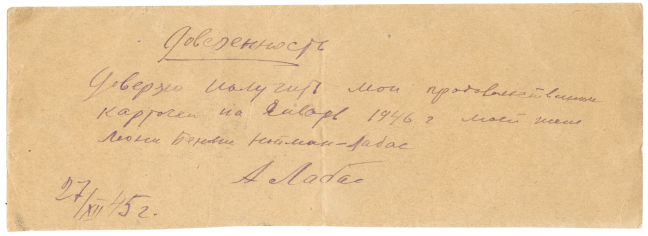 Доверенность
Доверяю получить мои продовольственные
карточки на Январь 1946 г моей жене
Леони Нейман-Лабас
А Лабас
27/XII 45 г.